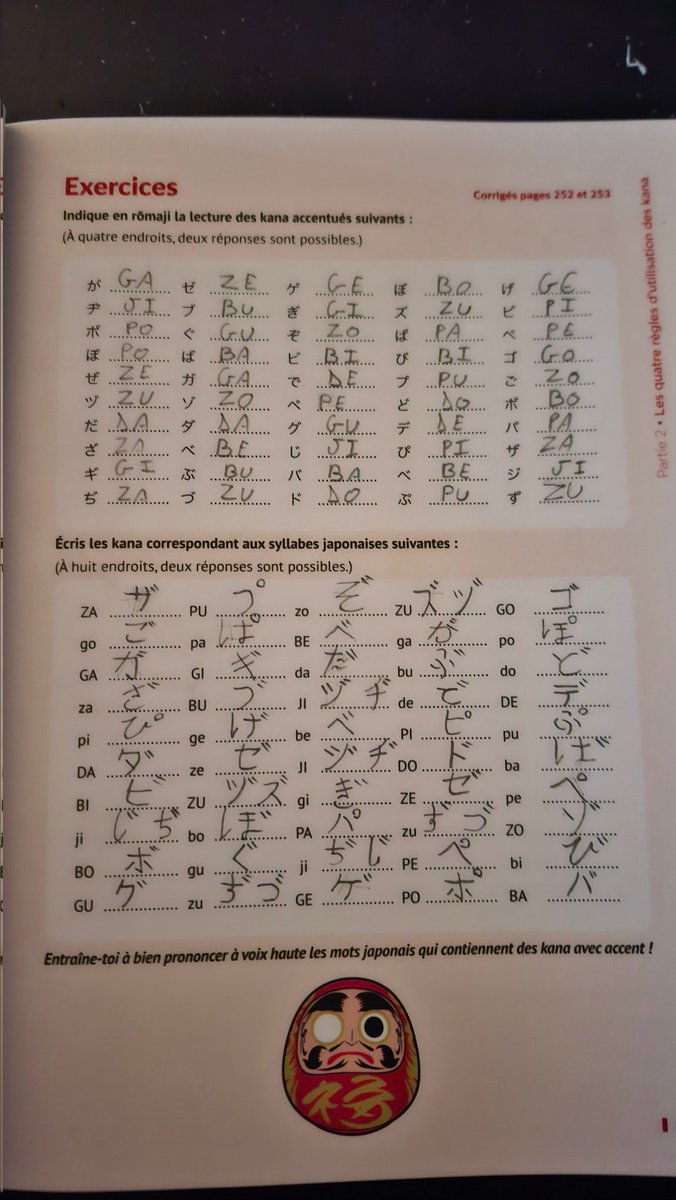 Exercices
Corrigés pages 252 et 253
Indique en rōmaji la lecture des kana accentués suivants :
(À quatre endroits, deux réponses sont possibles.)
が GA ゼ ZE ゲ GE ぼ BO げ GE
ヂ JI ブ BU ぎ GI ズ ZU ピ PI
ポ PO ぐ GU ぞ ZO ぱ PA ペ PE
ぽ PO ば BA ビ BI び BI ゴ GO
ぜ ZE ガ GA で DE プ PU ご ZO
ヅ ZU ゾ ZO ぺ PE ど DO ボ BO
だ DA ダ DA グ GU デ DE パ PA
ざ ZA べ BE じ JI ぴ PI ザ ZA
ギ GI ぶ BU バ BA ベ BE ジ JI
ぢ ZA づ ZU ド DO ぷ PU ず ZU
Écris les kana correspondant aux syllabes japonaises suivantes :
(À huit endroits, deux réponses sont possibles.)
ZA ザ PU プ zo ぞ ZU ズ ヅ GO ゴ
go ご pa ぱ BE ベ ga が po ぽ
GA ガ GI ギ da だ bu ぶ do ど
za ざ BU ブ JI ヅ ヂ de で DE デ
pi ぴ ge げ be べ PI ピ pu ぷ
DA ダ ze ゼ JI ヅ ヂ DO ド ba ば
BI ビ ZU ヅ ズ gi ぎ ZE ゼ pe ぺ
ji じ ぢ bo ぼ PA パ zu ず づ ZO ゾ
BO ボ gu ぐ ji ぢ じ PE ペ bi び
GU グ zu ず づ GE ゲ PO ポ BA バ
Entraîne-toi à bien prononcer à voix haute les mots japonais qui contiennent des kana avec accent !
Partie 2 • Les quatre règles d'utilisation des kana